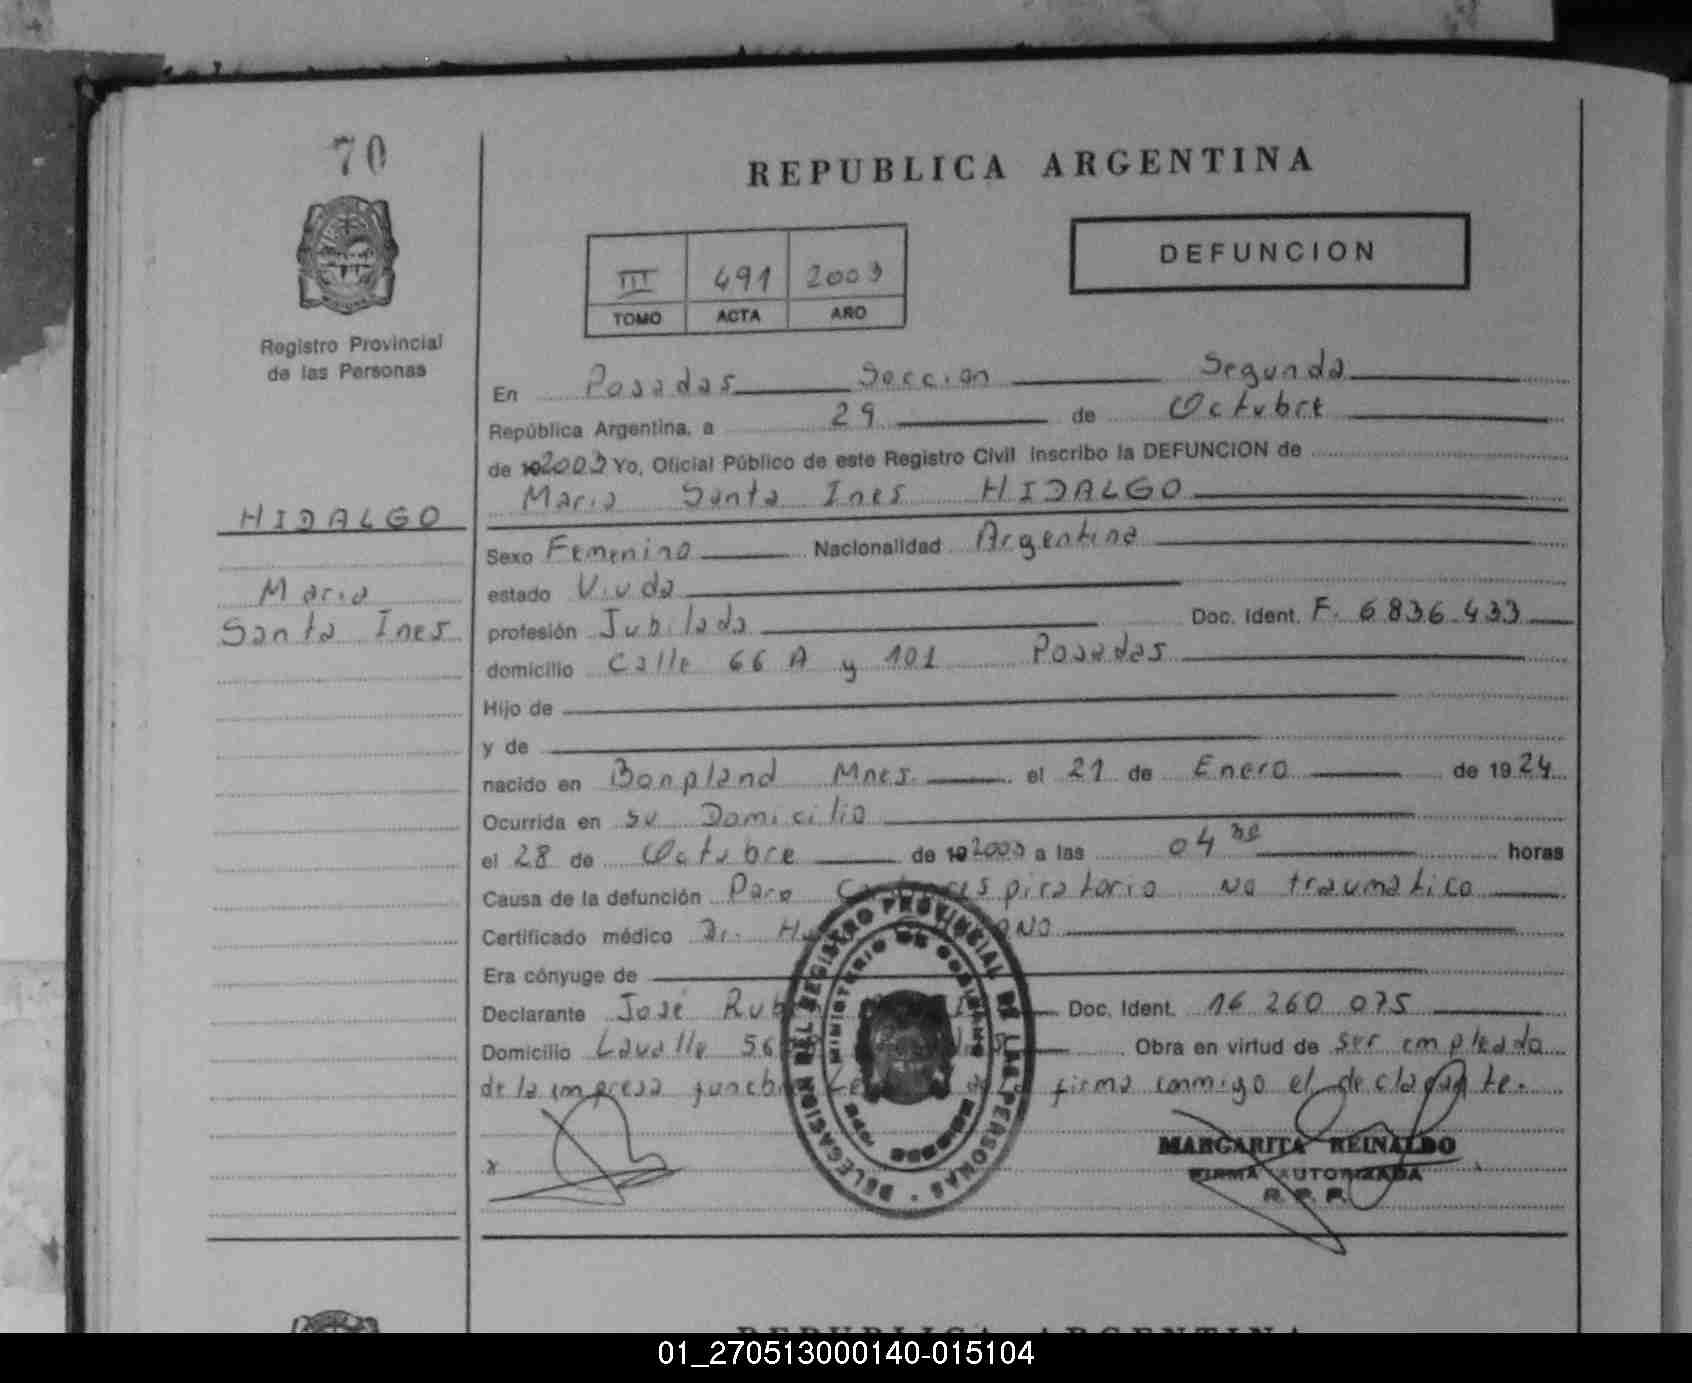 70
REPUBLICA ARGENTINA
DEFUNCION
III 491 2003
TOMO ACTA AÑO
Registro Provincial
de las Personas
En Posadas Seccion Segunda
República Argentina, a 29 de Octubre
de 192003 Yo, Oficial Público de este Registro Civil inscribo la DEFUNCION de
Maria Santa Ines HIDALGO
HIDALGO
Maria
Santa Ines
Sexo Femenino Nacionalidad Argentina
estado Viuda
profesión Jubilada Doc. Ident. F. 6836.433
domicilio Calle 66 A y 101 Posadas
Hijo de
y de
nacido en Bonpland Mnes. el 21 de Enero de 1924
Ocurrida en su Domicilio
el 28 de Octubre de 192003 a las 04 horas
Causa de la defunción Paro no traumatico
Certificado médico Dr.
Era cónyuge de
Declarante José Doc. Ident. 16 260 075
Domicilio Lavalle Obra en virtud de ser empleado
de la empresa firma conmigo el declarante.
x
DELEGACION DEL REGISTRO PROVINCIAL DE LAS PERSONAS
MINISTERIO DE GOBIERNO
MARGARITA REINALDO
FIRMA AUTORIZADA
R. P. P.
REPUBLICA ARGENTINA
01_270513000140-015104